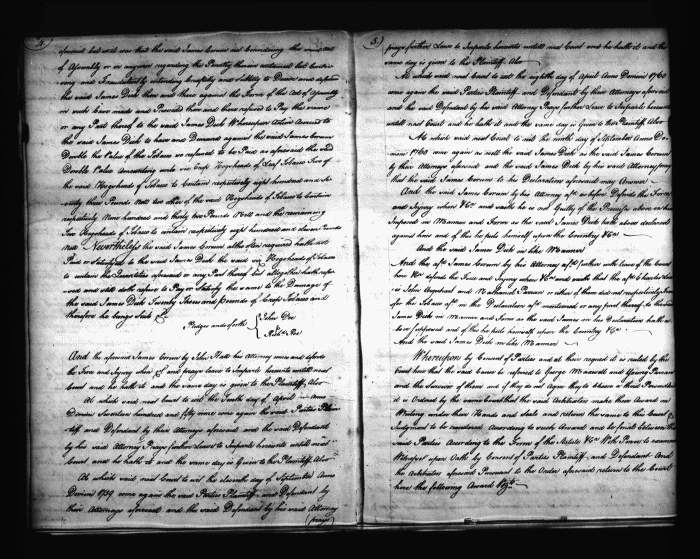 4.
aforesaid but well was that the said James Corum not Considering the said act
of Assembly or in anywise regarding the Penalty therein contained but Contri-
ving and Fraudulently intending craftily and subtilly to Deceive and defraud
the said James Dick then and there against the Form of the Act of Assembly
in such Case made and Provided then and there refused to Pay the same
or any Part thereof to the said James Dick Whereupon Action Accrued to
the said James Dick to have and Demand against the said James Corum
Double the Value of the Tobacco so refused to be Paid as aforesaid the said
Double Value Amounting unto six Crop Hogsheads of Leaf Tobacco Two of
the said Hogsheads of Tobacco to Contain respectively eight hundred and
three Pounds Nett two other of the said Hogsheads of Tobacco to Contain
respectively Nine hundred and thirty two Pounds Nett and the remaining
two Hogsheads of Tobacco to contain respectively eight hundred and eleven Pounds
Nett Nevertheless the said James Corum altho often required hath not
Paid or Satisfied to the said James Dick the said six Hogsheads of Tobacco
to contain the Quantities aforesaid or any Part thereof but altogether hath refu-
sed and still doth refuse to Pay or Satisfy the same to the Damage of
the said James Dick Twenty Three and pounds of Crop Tobacco and
therefore he brings Suit &c
Pledges and so forth { John Doe
& Richd Roe
And the aforesaid James Corum by John Hall his Attorney comes and defends
the Force and Injury when &c and prays leave to Imparle hereunto untill next
Court and he hath it and the same day is given to the Plaintiff Also
At which said next Court to wit the Tenth day of April Anno
Domini Seventeen hundred and fifty nine came again the said Parties Plain-
tiff and Defendant by their Attorneys aforesaid and the said Defendant
by his said Attorney Prays further Leave to Imparle hereunto untill next
Court and he hath it and the same day is Given to the Plaintiff Also
At which said next Court to wit the eleventh day of September Anno
Domini 1759 came again the said Parties Plaintiff and Defendant by
their Attorneys aforesaid and the said Defendant by his said Attorney
(prays)
5.)
prays further Leave to Imparle hereunto untill next Court and he hath it and the
same day is given to the Plaintiff Also
At which said next Court to wit the eighth day of April Anno Domini 1760
came again the said Parties Plaintiff and Defendant by their Attorneys aforesaid
and the said Defendant by his said Attorney Prays further Leave to Imparle hereunto
untill next Court and he hath it and the same day is Given to the Plaintiff Also
At which said next Court to wit the ninth day of September Anno Do-
mini 1760 came again as well the said James Dick as the said James Corum
by their Attorneys aforesaid and the said James Dick by his said Attorney prays
that the said James Corum to his Declaration aforesaid may Answer
And the said James Corum by his Attorney afd as before Defends the Force
and Injury when &ca and saith he is not Guilty of the Premises above on him
Imposed in Manner and Form as the said James Dick hath above declared
against him and of this he puts himself upon the Country &ca
And the said James Dick in like Manner
And the afd James Corum by his Attorney afd further with leave of the Court
here &ca defends the Force and Injury when &ca and saith that the afd
John Raitt and Nathaniel did not respectively
for the Tobacco afd in the Declaration afd mentioned or any part thereof to the said
James Dick in Manner and Form as the said James in his Declaration hath a-
bove supposed and of this he puts himself upon the Country &ca
And the said James Dick in like Manner
Whereupon by Consent of Parties and at their request it is ruled by the
Court here that the said Cause be referred to George Maxwell and Young Parran
and the Survivor of them and if they do not Agree they to chuse a third Person and
it is Ordered by the same Court that the said Arbitrators make their Award in
Writing under their Hands and Seals and return the same to this Court &
Judgment to be rendered According to such Award and to be final between the
said Parties According to the Form of the Statute &ca With Power to examine
Witnesses upon Oath by Consent of Parties Plaintiff and Defendant And
the Arbitrators aforesaid Pursuant to the Order aforesaid return to the Court
here the following Award Viz